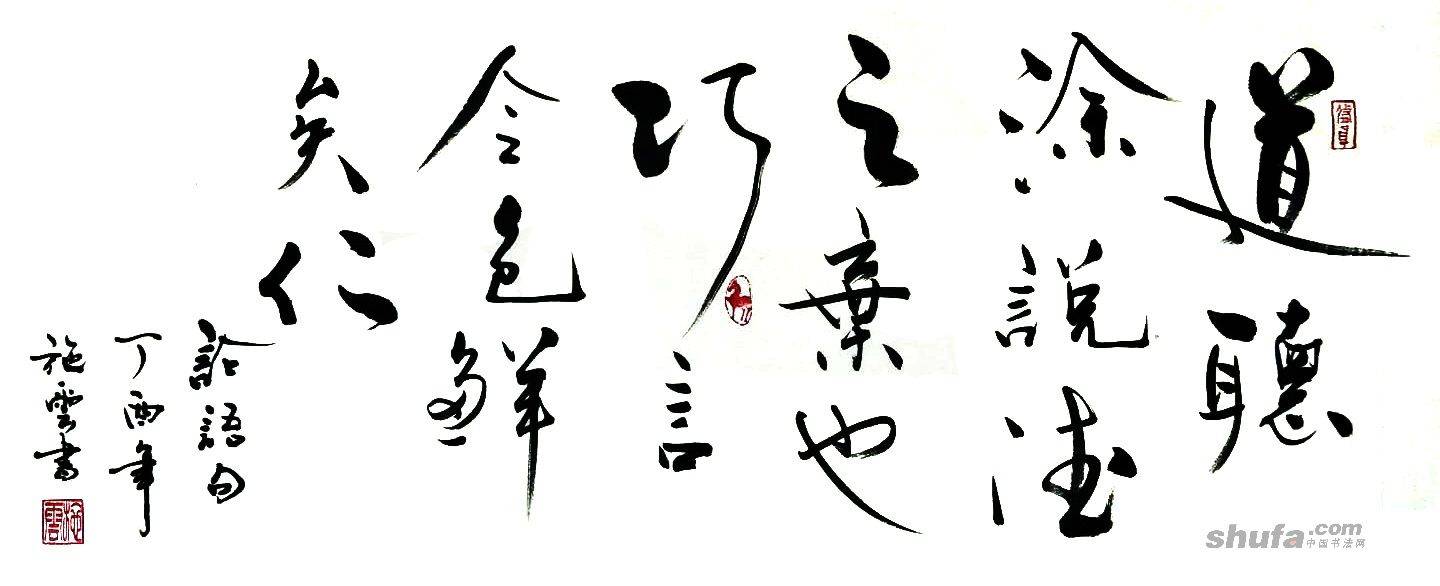 道聽
涂說德
之棄也
巧言
令色鮮
矣仁
論語句
丁酉年
施雲書
施雲
shufa.com
中国书法网